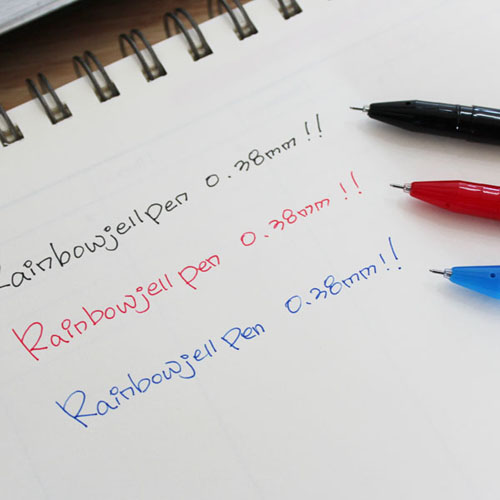 Rainbowjell pen 0.38mm!!
Rainbowjell pen 0.38mm!!
Rainbowjell pen 0.38mm!!